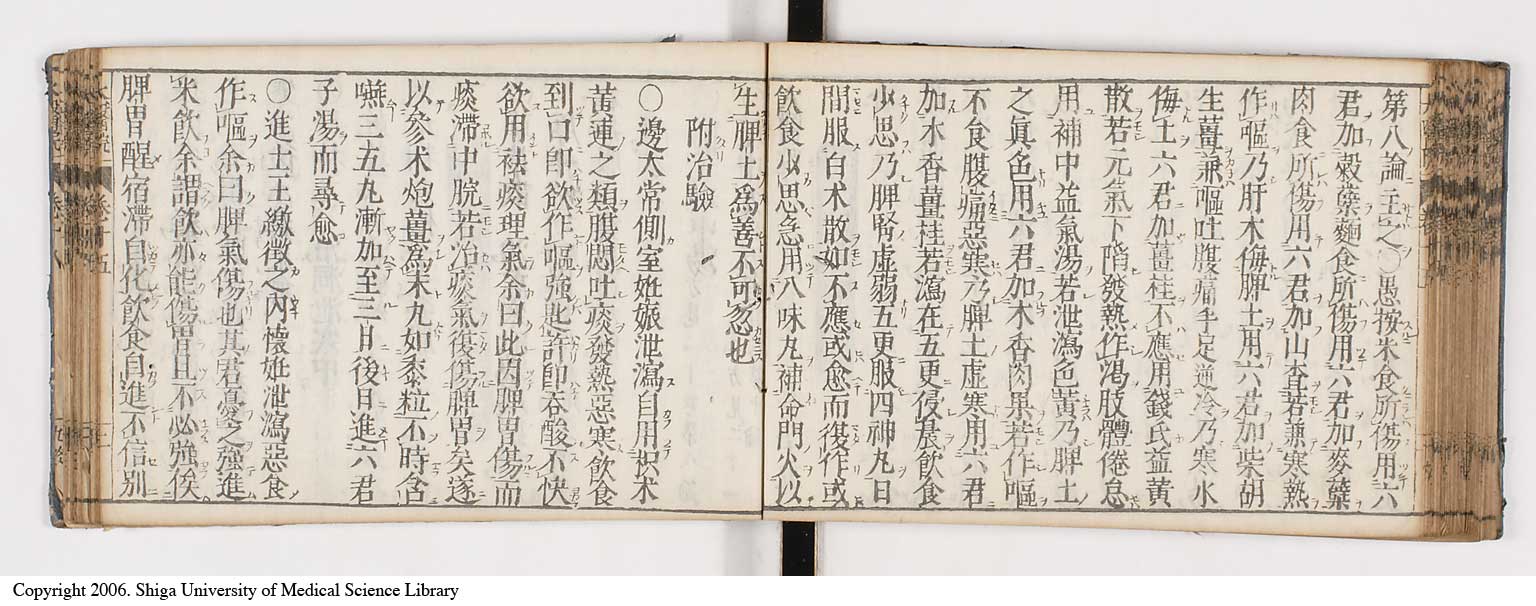 第八論主之○愚按米食所傷用六
君加穀蘖麵食所傷用六君加麥蘖
肉食所傷用六君加山査若兼寒熱
作嘔乃肝木侮脾土用六君加柴胡
生薑兼嘔吐腹痛手足逆冷乃寒水
侮土六君加薑桂不應用錢氏益黃
散若元氣下陷發熱作渴肢體倦怠
用補中益氣湯若泄瀉色黃乃脾土
之眞色用六君加木香肉果若作嘔
不食腹痛惡寒乃脾土虛寒用六君
加木香薑桂若瀉在五更侵晨飲食
少思乃脾腎虛弱五更服四神丸日
間服白朮散如不應或愈而復作或
飲食少思急用八味丸補命門火以
生脾土爲善不可忽也
附治驗
○邊太常側室姙娠泄瀉自用枳朮
黃連之類腹悶吐痰發熱惡寒飲食
到口卽欲作嘔強匙許卽吞酸不快
欲用祛痰理氣余曰此因脾胃傷而
痰滯中脘若治痰氣復傷脾胃矣遂
以參朮炮薑爲末丸如黍粒不時含
嚥三五丸漸加至三日後日進六君
子湯而尋愈
○進士王繳徵之內懷姙泄瀉惡食
作嘔余曰脾氣傷也其君憂之強進
米飲余謂飲亦能傷胃且不必強俟
脾胃醒宿滯自化飲食自進不信別
Copyright 2006. Shiga University of Medical Science Library